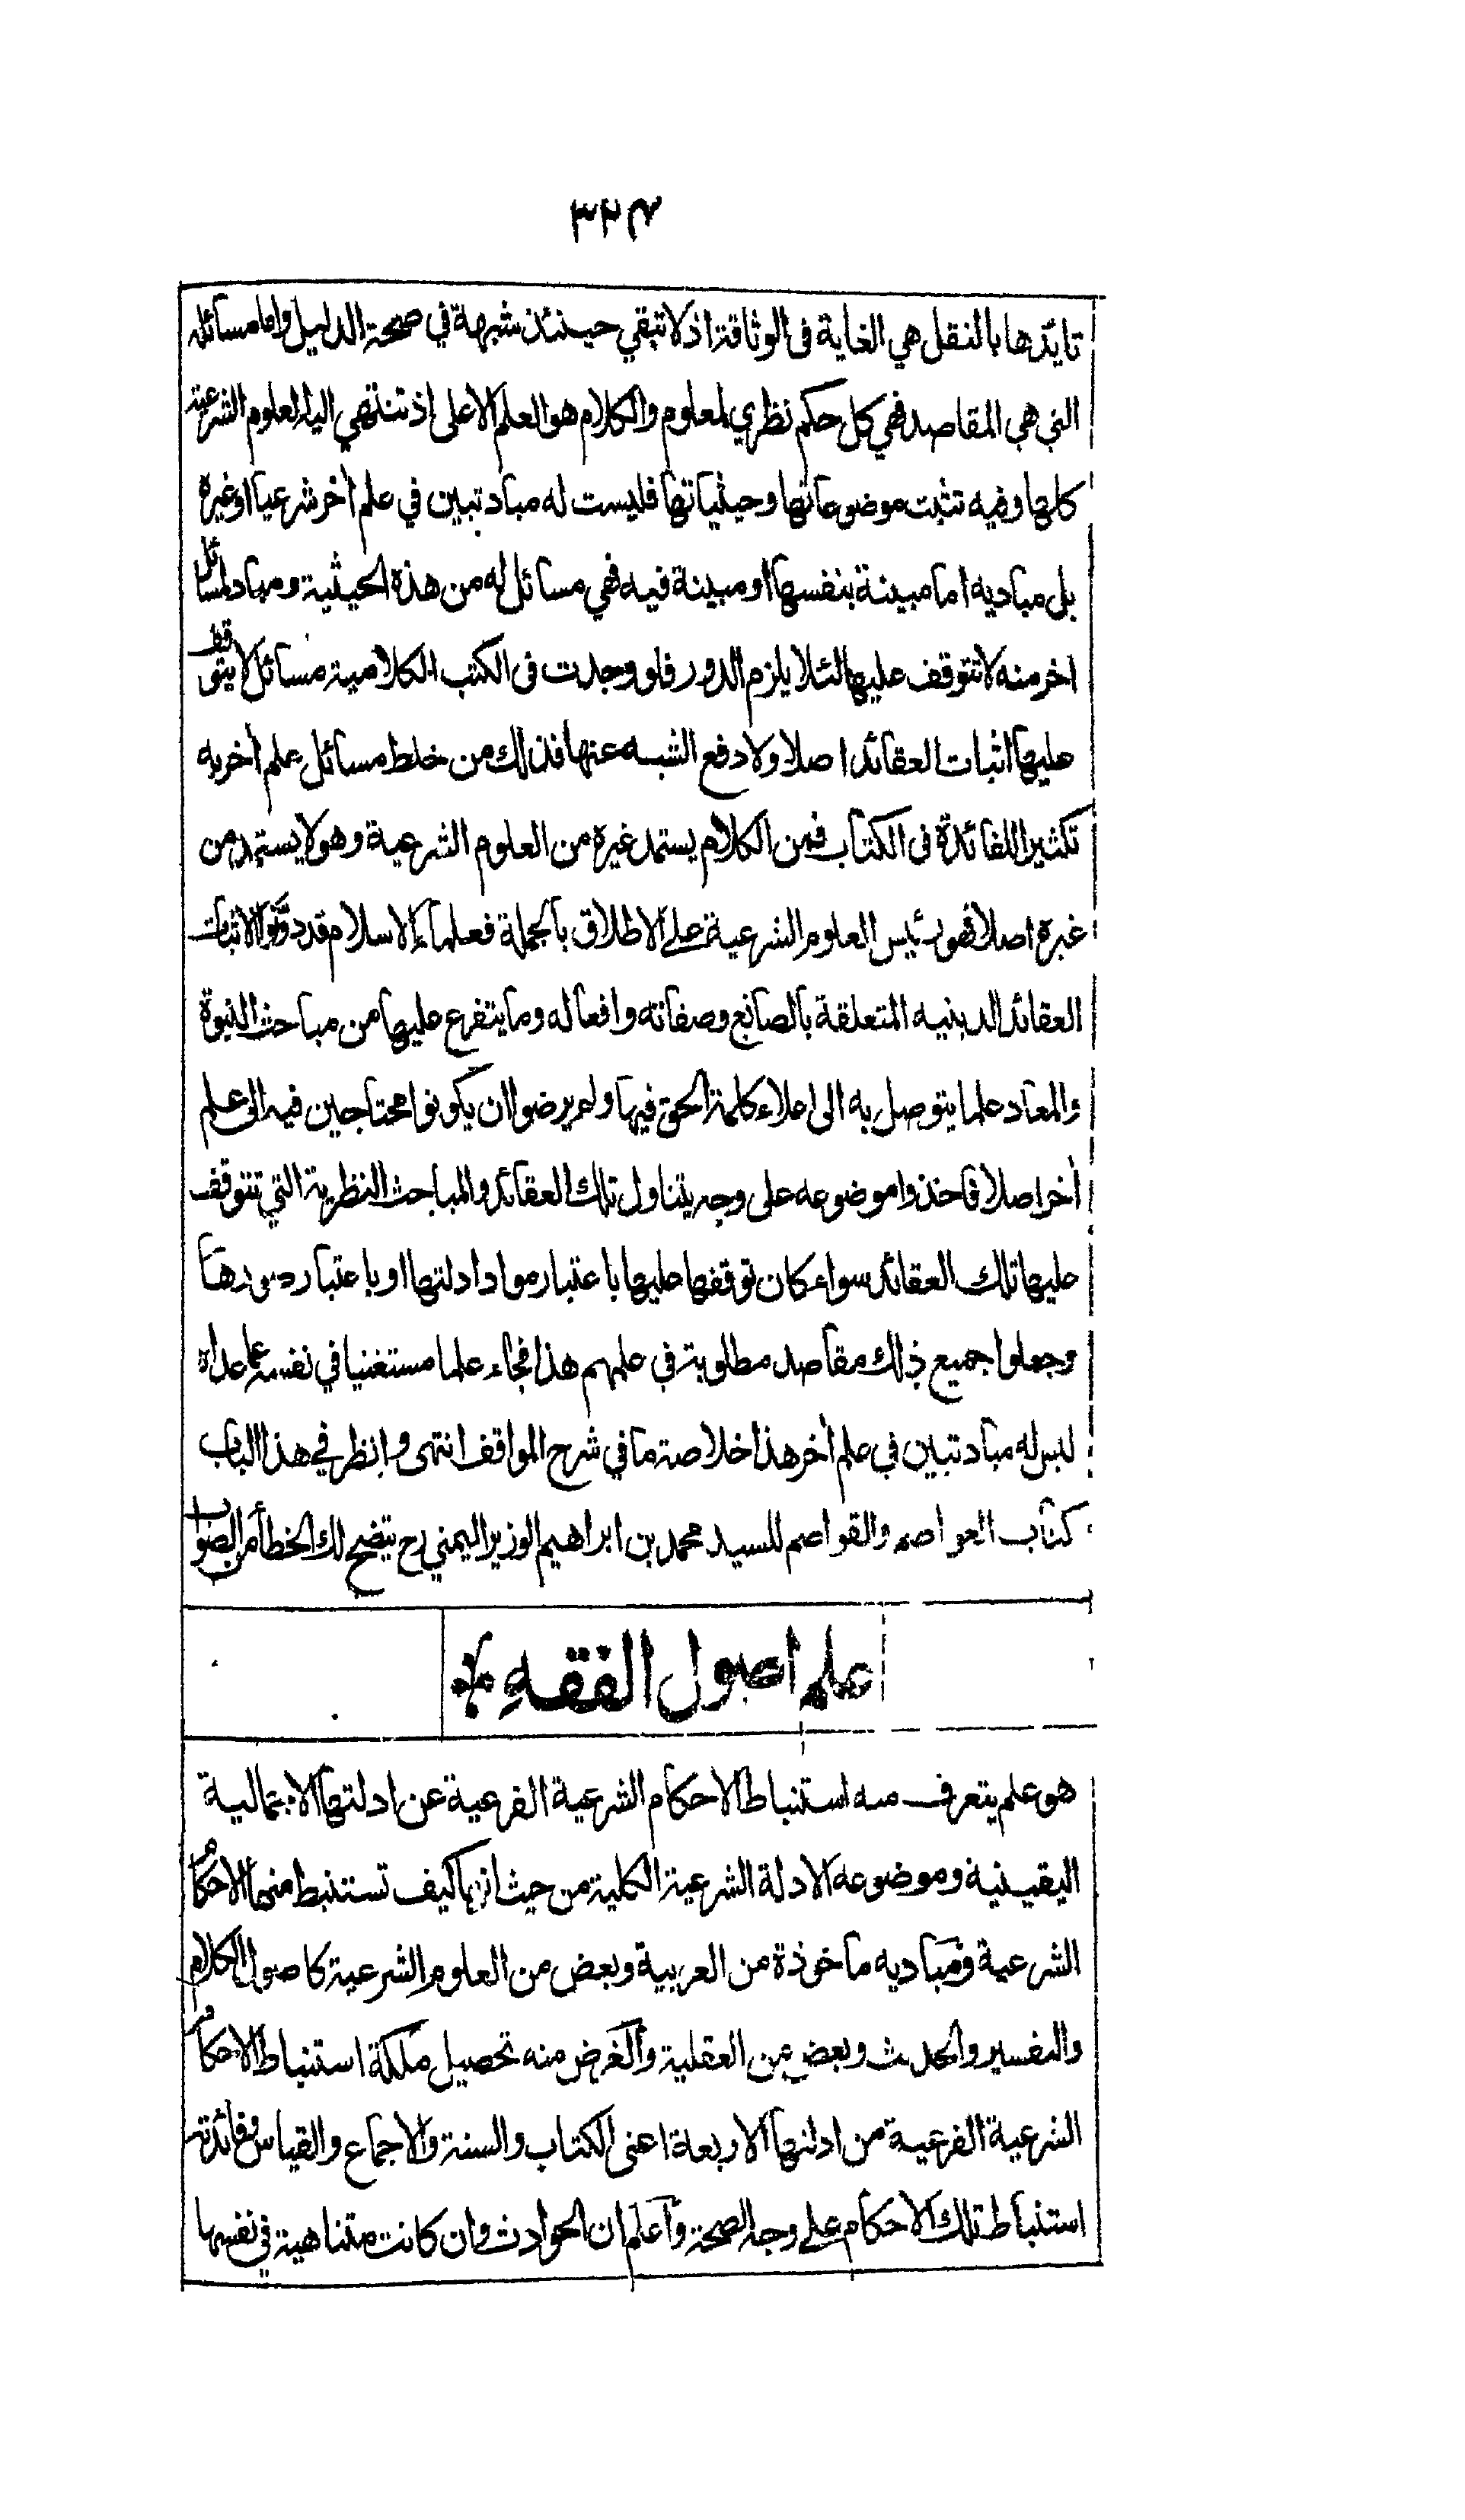 ٣٢٤
تايّدها بالنقل هي الغاية فى الوثاقة اذ لا تبقي حينئذ شبهة في صحة الدليل واما مسائله
التي هي المقاصد فهي كل حكم نظري لمعلوم والكلام هو العلم الاعلى اذ تنتهي اليه العلوم الشرعية
كلها وفيه تثبت موضوعاتها وحيثياتها فليست له مباد تبين في علم أخر شرعيا او غيره
بل مباديه اما مبينة بنفسها او مبينة فيه فهي مسائل له من هذه الحيثية ومباد لمسائل
اخر منه لا تتوقف عليها لئلا يلزم الدور فلو وجدت فى الكتب الكلامية مسائل لا يتوقف
عليها اثبات العقائد اصلا ولا دفع الشبه عنها فذلك من خلط مسائل علم أخر به
تكثيرا للفائدة فى الكتاب فمن الكلام يستمد غيره من العلوم الشرعية وهو لا يستمد من
غيره اصلا فهو رئيس العلوم الشرعية على الاطلاق بالجملة فعلماء الاسلام قد دوّنوا لاثبات
العقائد الدينيه المتعلقة بالصانع وصفاته وافعاله وما يتفرع عليها من مباحث النبوة
والمعاد علما يتوصل به الى اعلاء كلمة الحق فيها ولم يرضوا ان يكونوا محتاجين فيه الى علم
أخر اصلا فاخذوا موضوعه على وجه يتناول تلك العقائد والمباحث النظرية التي تتوقف
عليها تلك العقائد سواء كان توقفها عليها باعتبار مواد ادلتها او باعتبار صورها
وجعلوا جميع ذلك مقاصد مطلوبة في علمهم هذا فجاء علما مستغنيا في نفسه عما عداه
ليس له مباد تبين في علم أخر هذا خلاصة ما في شرح المواقف انتهى وانظر في هذا الباب
كتاب العواصم والقواصم للسيد محمد بن ابراهيم الوزير اليمني رح يتضح لك الخطأ من الصواب
علم اصول الفقهِ
هو علم يتعرف منه استنباط الاحكام الشرعية الفرعية عن ادلتها الاجمالية
اليقينية وموضوعه الادلة الشرعية الكلية من حيث انها كيف تستنبط منها الاحكام
الشرعية ومباديه ماخوذة من العربية وبعض من العلوم الشرعية كاصول الكلام
والتفسير والحديث وبعض من العقلية والغرض منه تحصيل ملكة استنباط الاحكام
الشرعية الفرعية من ادلتها الاربعة اعنى الكتاب والسنة والاجماع والقياس وفائدته
استنباط تلك الاحكام على وجه الصحة وأعلم ان الحوادث وان كانت متناهية في نفسها